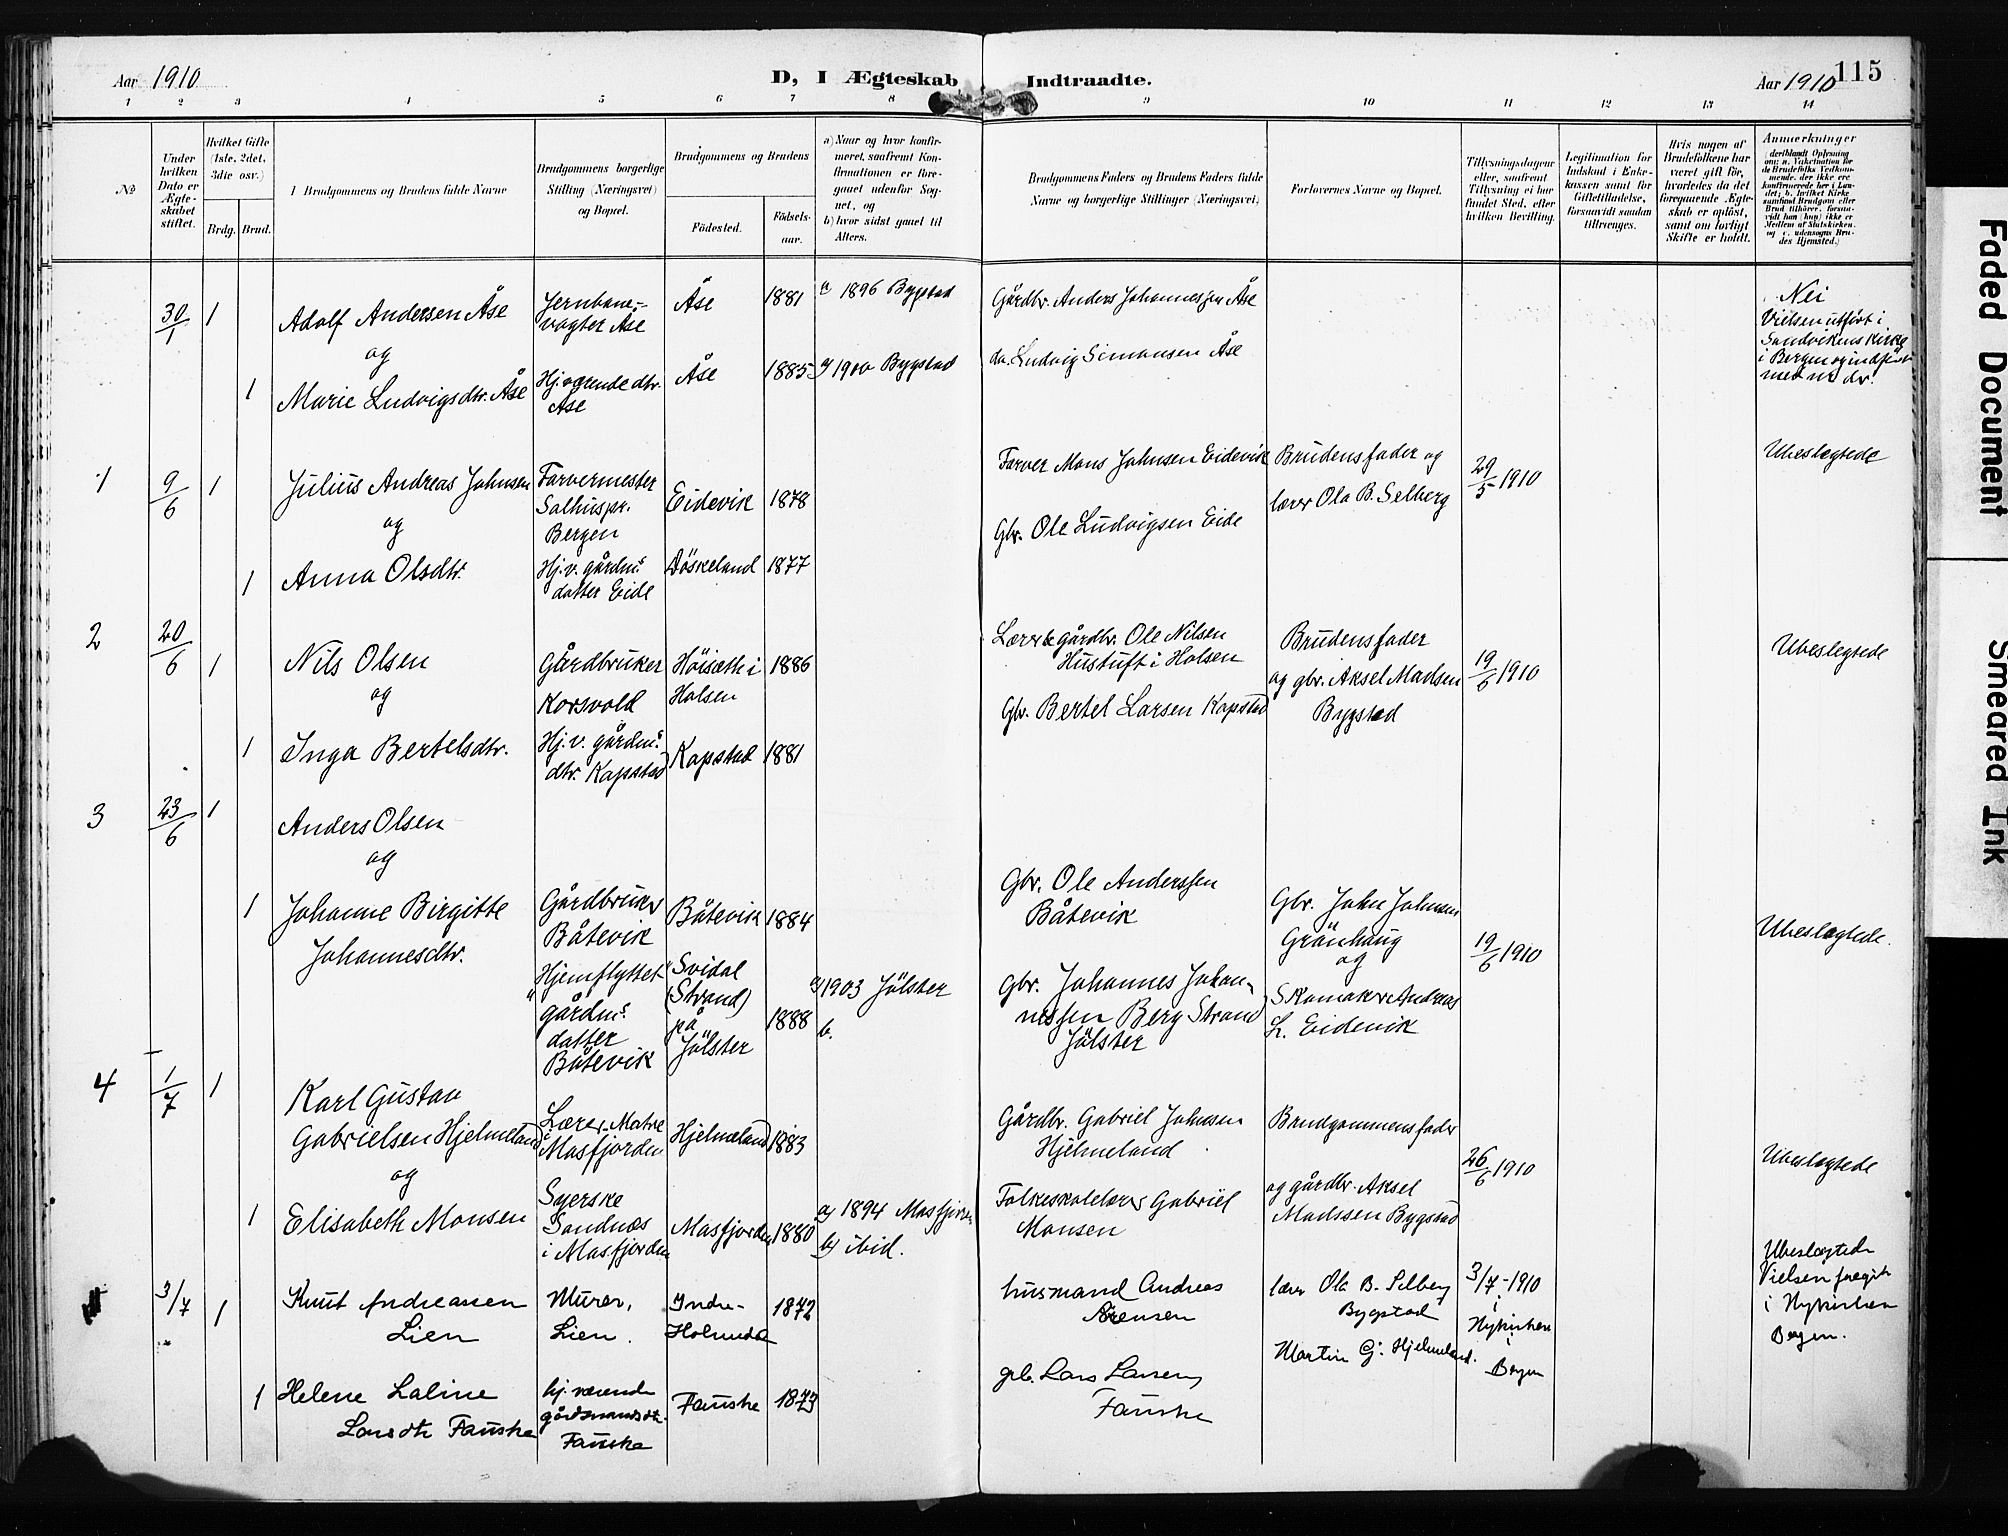 Aar 1910
D, I Ægteskab Indtraadte.
Aar 1910
115
1 2 3 4 5 6 7 8 9 10 11 12 13 14
No
Under hvilken Dato er Ægteskabet stiftet.
Hvilket Gifte (1ste, 2det, 3die osv.)
Brdg.
Brud.
Brudgommens og Brudens fulde Navne
Brudgommens borgerlige Stilling (Næringsvei) og Bopæl.
Brudgommens og Brudens
Fødested.
Fødselsaar.
a) Naar og hvor konfirmeret, saafremt Konfirmationen er foregaaet udenfor Sognet, og
b) hvor sidst gaaet til Alters.
Brudgommens Faders og Brudens Faders fulde Navne og borgerlige Stillinger (Næringsvei)
Forlovernes Navne og Bopæl.
Tillysningsdagene eller, saafremt Tillysning ei har fundet Sted, efter hvilken Bevilling.
Legitimation for Indskud i Enkekassen samt for Giftetilladelse, forsaavidt saadan tiltrænges.
Hvis nogen af Brudefolkene har været gift før, hvorledes da det foregaaende Ægteskab er opløst, samt om lovligt Skifte er holdt.
Anmerkninger
(deriblandt Oplysning om: a. Vakcination for de Brudefolks Vedkommende, der ikke ere konfirmerede her i Landet; b. hvilket Kirkesamfund Brudgom eller Brud tilhører, forsaavidt han (hun) ikke er Medlem af Statskirken, og c. udensogns Brudes Hjemsted.)
30/1
1
Adolf Andersen Åse
og
1
Marie Ludvigsdtr. Åse
Jernbane-
vogter Åse
Hj. værende dtr.
Åse
Åse
1881
a 1896 Bygstad
Åse
1885
a) 1900 Bygstad
Gårdbr. Anders Johannessen Åse
do. Ludvig Simonsen Åse
Nei
Vielsen utført i
Sandvikens kirke
i Bergen og indført
1
9/6
1
Julius Andreas Johnsen
og
1
Anna Olsdtr.
Farvermester
Salhus pr.
Bergen
Hj. v. gårdm.s
datter Eide
Eidevik
1878
Döskeland
1877
Farver Mons Johnsen Eidevik
Gbr. Ole Ludvigsen Eide
Brudens fader og
lærer Ola B. Selberg
29/5 1910
Ubeslegtede
2
20/6
1
Nils Olsen
og
1
Inga Bertelsdtr.
Gårdbruker
Korsvold
Hj. v. gårdm.s
dtr. Kapstad
Höisæth i
Holsen
1886
Kapstad
1881
Lærer & gårdbr. Ole Nilsen
Hustuft i Holsen
Gbr. Bertel Larsen Kapstad
Brudens fader
og gbr. Aksel Madsen
Bygstad
19/6 1910
Ubeslegtede
3
23/6
1
Anders Olsen
og
1
Johanne Birgitte
Johannesdtr.
Gårdbruker
Båtevik
Hjemflyttet
gårdm.s
datter
Båtevik
Båtevik
1884
Svidal
(Strand)
på
Jölster
1888
a) 1903 Jölster
b.
Gbr. Ole Anderssen
Båtevik
Gbr. Johannes Johan-
nessen Berg Strand
Jölster
Gbr. John Johnsen
Grönhaug
og
Skomaker Andreas
L. Eidevik
19/6 1910
Ubeslegtede.
4
1/7
1
Karl Gustav
Gabrielsen Hjelmeland
og
1
Elisabeth Monsen
Lærer Matre
i Masfjorden
Syerske
Sandnæs
i Masfjorden
Hjelmeland
1883
Masfjorden
1880
a) 1894 Masfjorden
b) ibid.
Gårdbr. Gabriel Johnsen
Hjelmeland
Folkeskolelærer Gabriel
Monsen
Brudgommens fader
og gårdbr. Aksel
Madssen Bygstad
26/6 1910
Ubeslegtede
3/7
1
Knut Andreassen
Lien
1
Helene Laline
Larsdtr Fauske
Murer,
Lien.
hj. værende
gårdmandsdtr.
Fauske
Indre-
Holmedal
1872
Fauske
1873
husmand Andreas
Sörensen
grb. Lars Larsen,
Fauske
lærer Ola B. Selberg
Bygstad
Martin G. Hjelmeland.
3/7-1910
i
Nykirken
i
Bergen
Ubeslegtede
Vielsen foregik
i Nykirken
Bergen.
Faded Document
Smeared Ink